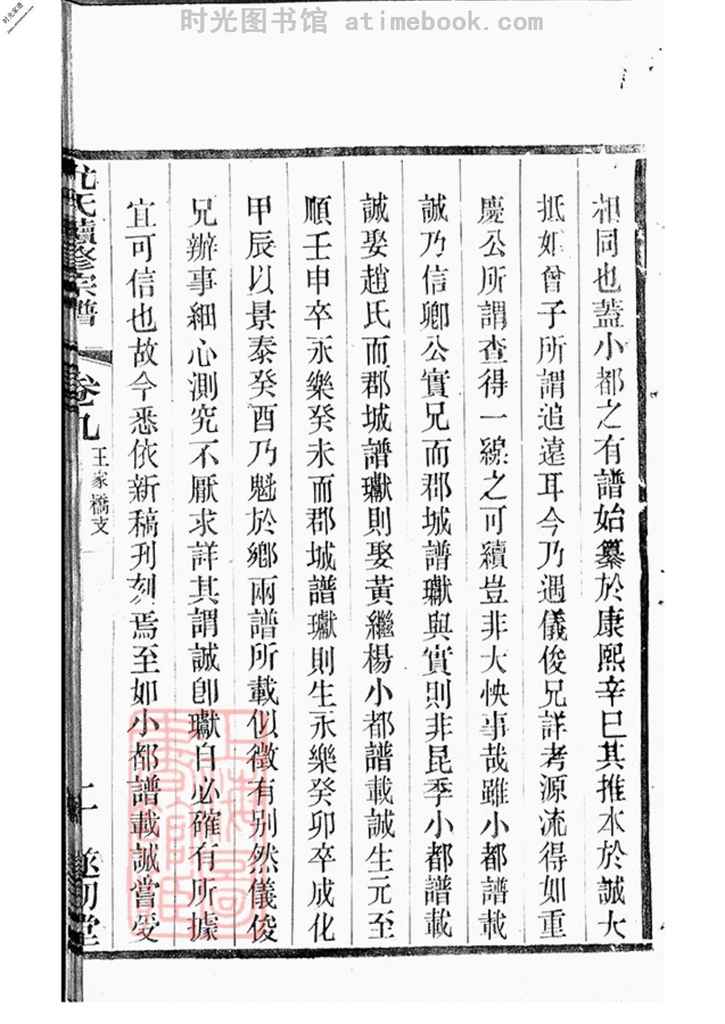 时光图书馆 atimebook.com
相同也蓋小都之有譜始纂於康熙辛巳其推本於誠大
抵如曾子所謂追遠耳今乃遇儀俊兄詳考源流得如重
慶公所謂查得一線之可續豈非大快事哉雖小都譜載
誠乃信卿公實兄而郡城譜瓛與實則非昆季小都譜載
誠娶趙氏而郡城譜瓛則娶黃繼楊小都譜載誠生元至
順壬申卒永樂癸未而郡城譜瓛則生永樂癸卯卒成化
甲辰以景泰癸酉乃魁於鄉兩譜所載似徵有别然儀俊
兄辦事細心測究不厭求詳其謂誠卽瓛自必確有所據
宜可信也故今悉依新稿刊刻焉至如小都譜載誠嘗受
尤氏續修宗譜
卷九
王家橋支
二
遂初堂